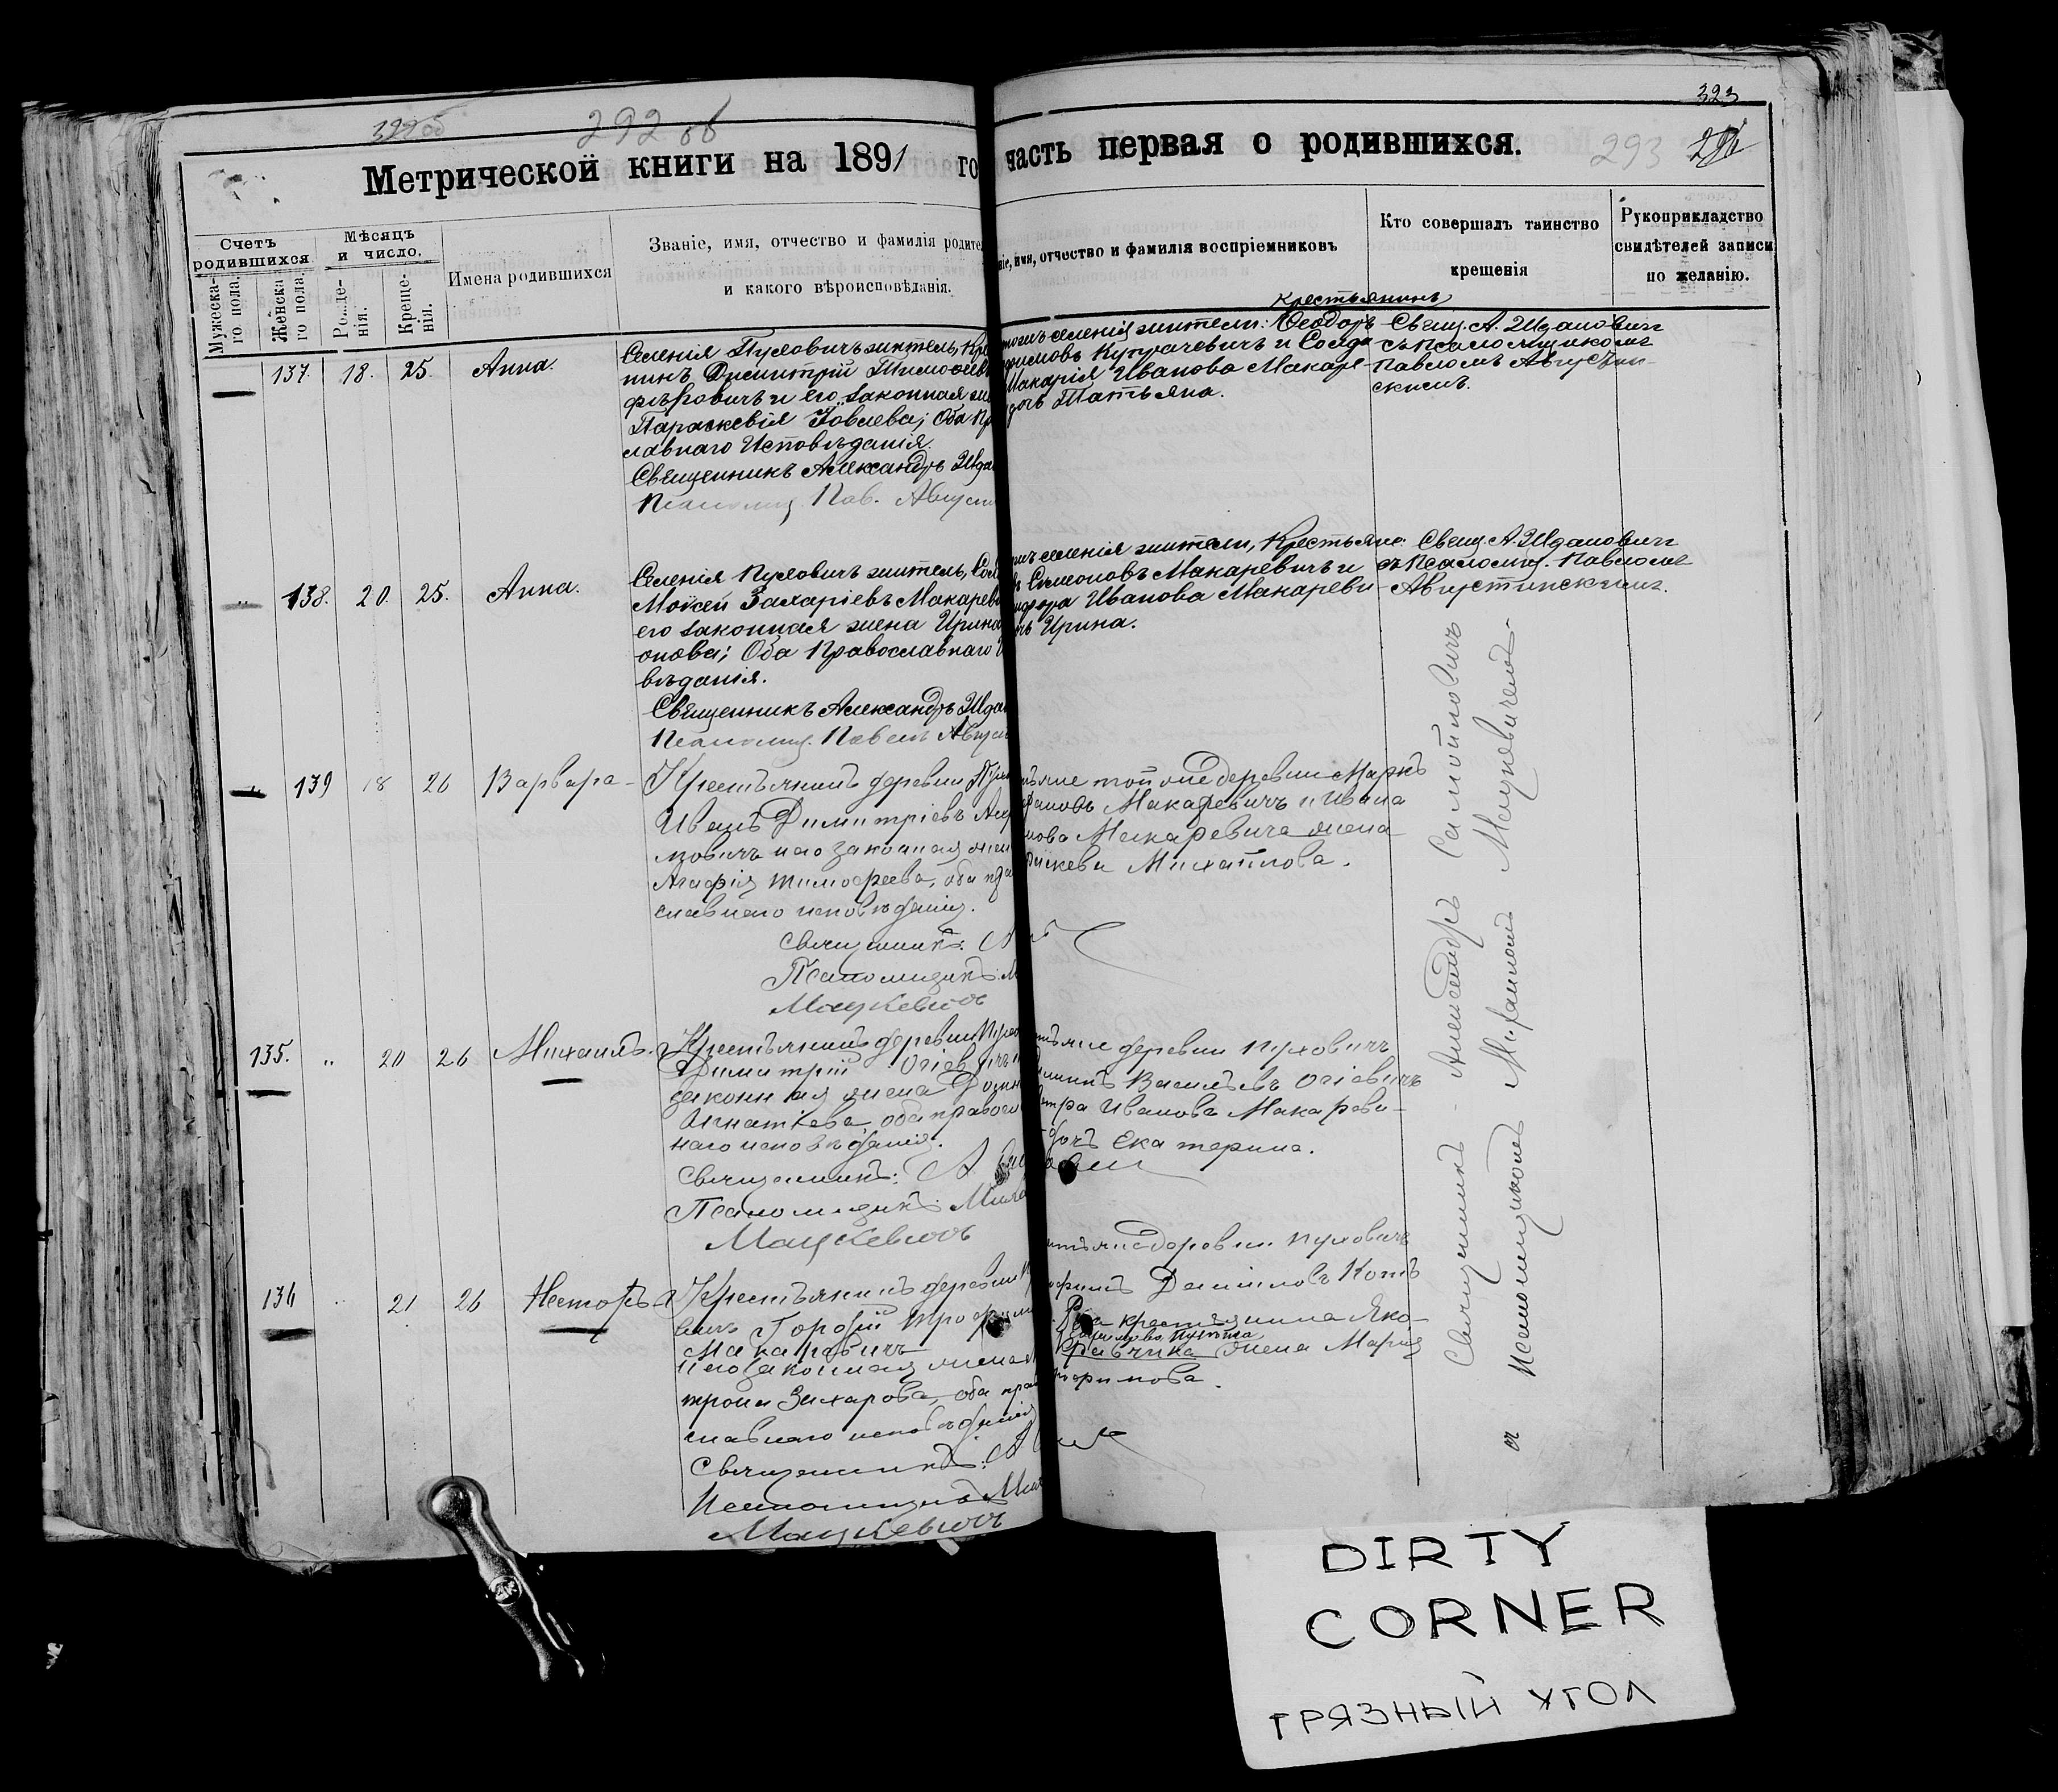 322об
292 об
323
293
Метрической книги на 1891 го
часть первая о родившихся.
Счетъ родившихся
Мужеска-го пола.
Женска го пола.
Мѣсяцъ и число.
Рожде-нія.
Креще-нія.
Имена родившихся
Званіе, имя, отчество и фамилія родите
и какого вѣроисповѣданія.
ніе, имя, отчество и фамилія воспріемниковъ
Кто совершалъ таинство
крещенія
Рукоприкладство
свидѣтелей записи
по желанію.
137. 18. 25. Анна.
Селенія Пуховичъ житель, Кре
нинъ Димитрій Тимоѳеев
и его законная же
Параскевія Іовлева; Оба Пр
славнаго Исповѣданія.
Священникъ Александръ Жда
Псаломщ. Пав. Августи
крестьянинъ
тогожъ селенія жители: Ѳеодоръ
Кугачевичъ и Солда
Макарія Иванова Макаре-
дочь Татьяна.
Свящ. А. Ждановичъ
съ Псаломщикомъ
Павломъ Августин-
скимъ.
" 138. 20. 25. Анна.
Селенія Пуховичъ житель, Сол
Моисей Захаріевъ Макареви
его законная жена Ирина
онова; Оба Православнаго И
вѣданія.
Священникъ Александръ Жда
Псаломщ. Павелъ Августи
селенія жители, Крестьяне:
Симеоновъ Макаревичъ и
Иванова Макареви-
чъ Ирина.
Свящ. А. Ждановичъ
съ Псаломщ. Павломъ
Августинскимъ.
" 139 18 26 Варвара
Крестьянинъ деревни Пухо
Иванъ Димитріевъ
и его законная жен
Агафія Тимофеева, оба пра
славнаго исповѣданія.
Священникъ: А
Псаломщикъ: М
Мацкевичъ
тьяне той же деревни Маркъ
фановъ Макаревичъ и Ивана
нова Макаревича жена
Михайлова.
135. " 20 26 Михаилъ.
Крестьянинъ деревни Пухо
Димитрій Огіевичъ и
законная жена Дом
Игнатіева, оба правосл
наго исповѣданія.
Священникъ: А
Псаломщикъ: Миха
Мацкевичъ
тьяне деревни Пуховичъ
Васильевъ Огіевичъ
етра Иванова Макареви-
дочь Екатерина.
136 " 21 26 Несторъ
Крестьянинъ деревни П
вичъ Гордій Трофимо
Макаревичъ
и его законная жена М
трона Захарова, оба пра
славнаго исповѣданія
Священникъ: А
Псаломщикъ Мих
Мацкевичъ
тьяне деревни Пуховичъ
Даниловъ Котъ
крестьянина Яко-
Кравчика жена Марія
Трофимова.
Священникъ Александръ Самойловичъ
съ Псаломщикомъ Михаиломъ Мацкевичемъ.
DIRTY
CORNER
ГРЯЗНЫЙ УГОЛ